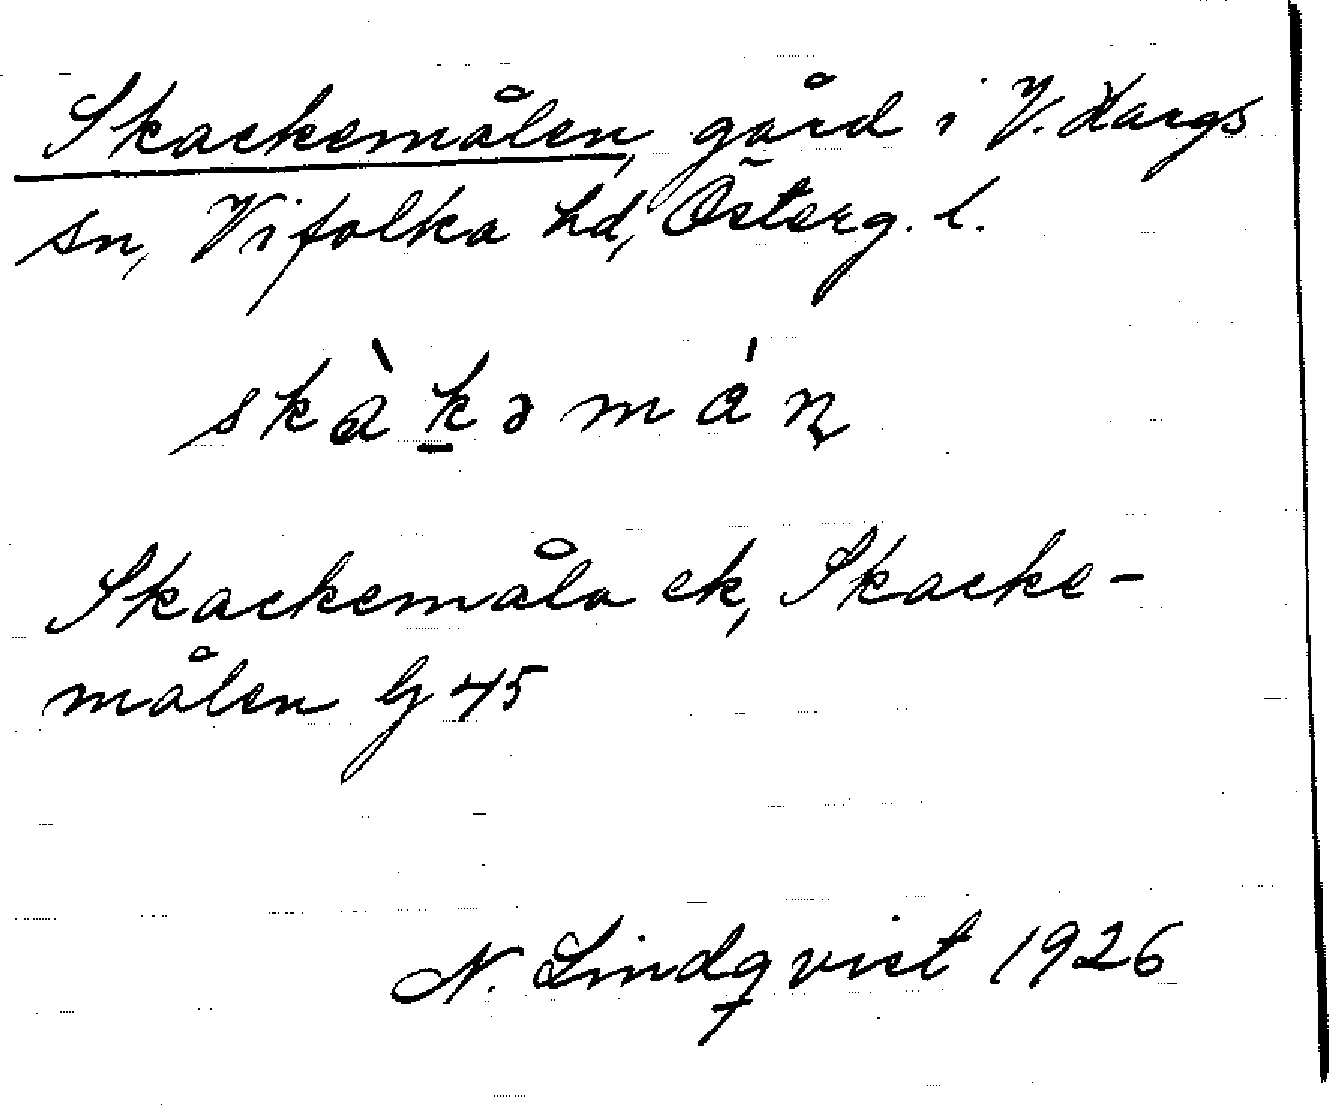 Skackemålen, gård i V. Hargs
sn, Vifolka hd, Österg. l.
skàk̠əmáņ
Skackemåla ek, Skacke-
målen G 45
N. Lindqvist 1926